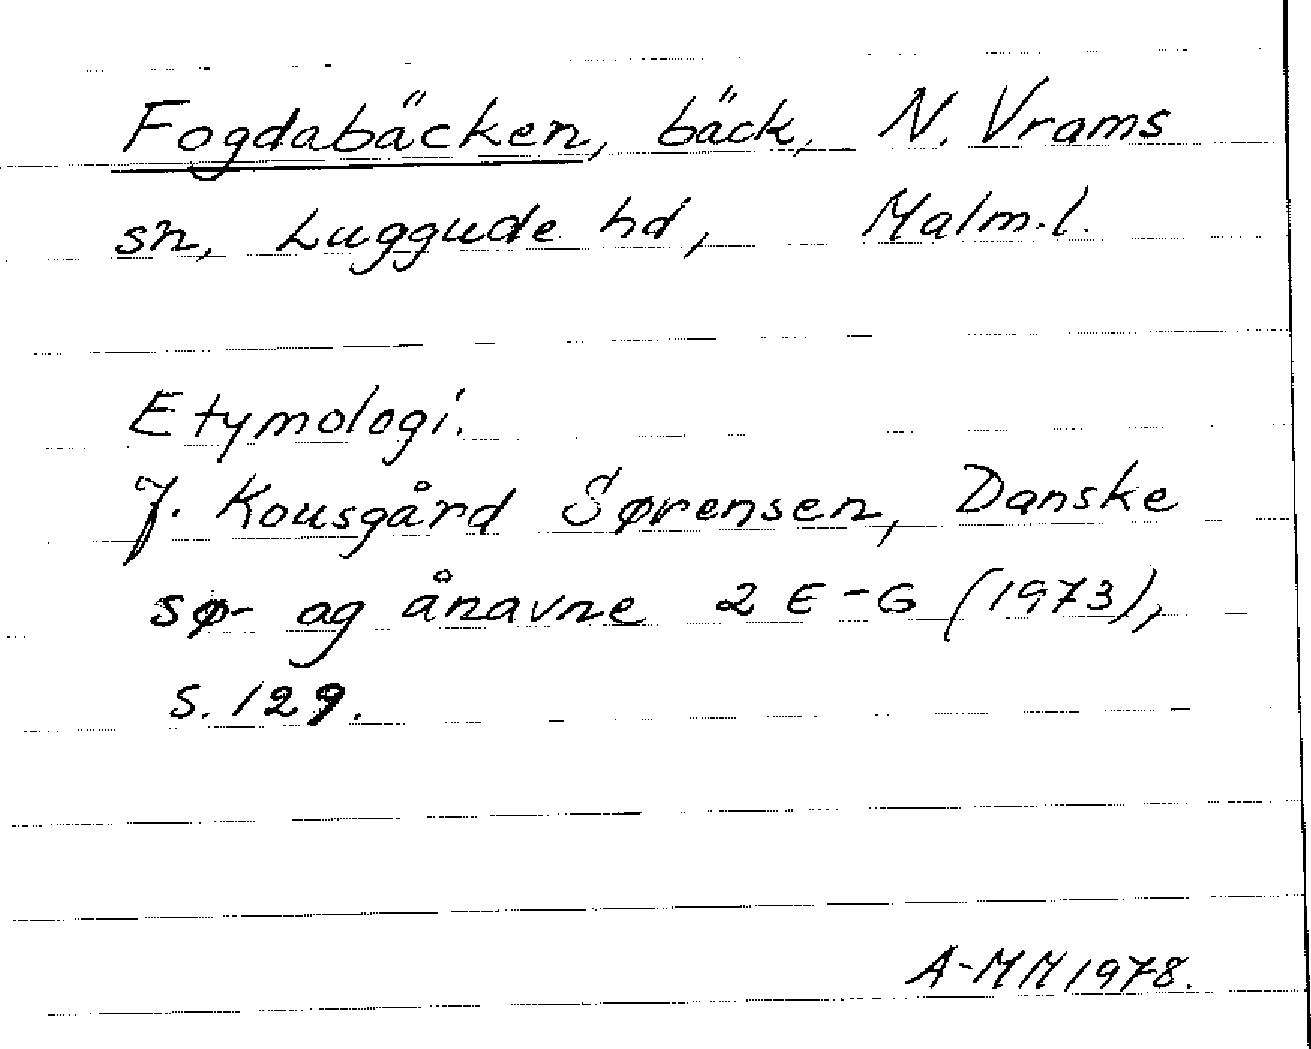 Fogdabäcken, bäck, N. Vrams
sn, Luggude hd, Malm.l.
Etymologi.
J. Kousgård Sørensen, Danske
sø- og ånavne 2 E-G (1973),
s. 129.
A-MM 1978.